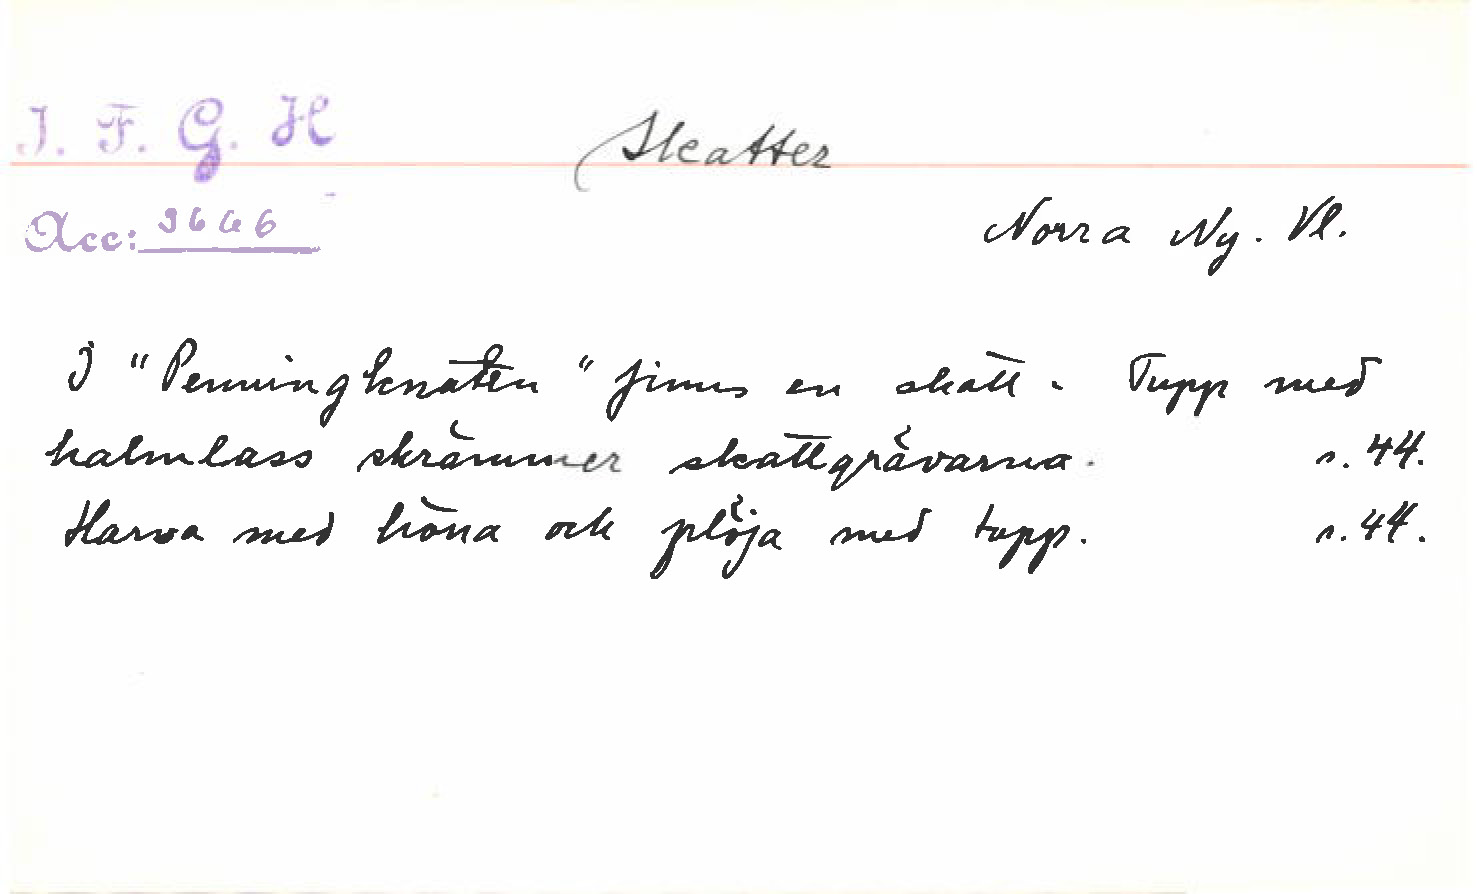 I. F. G. H
Skatter
Acc: 3666
Norra Ny. Vl.
I "Penningknatten" finns en skatt. Tupp med
halmlass skrämmer skattgrävarna. s. 44.
Harva med höna och plöja med tupp. s. 44.